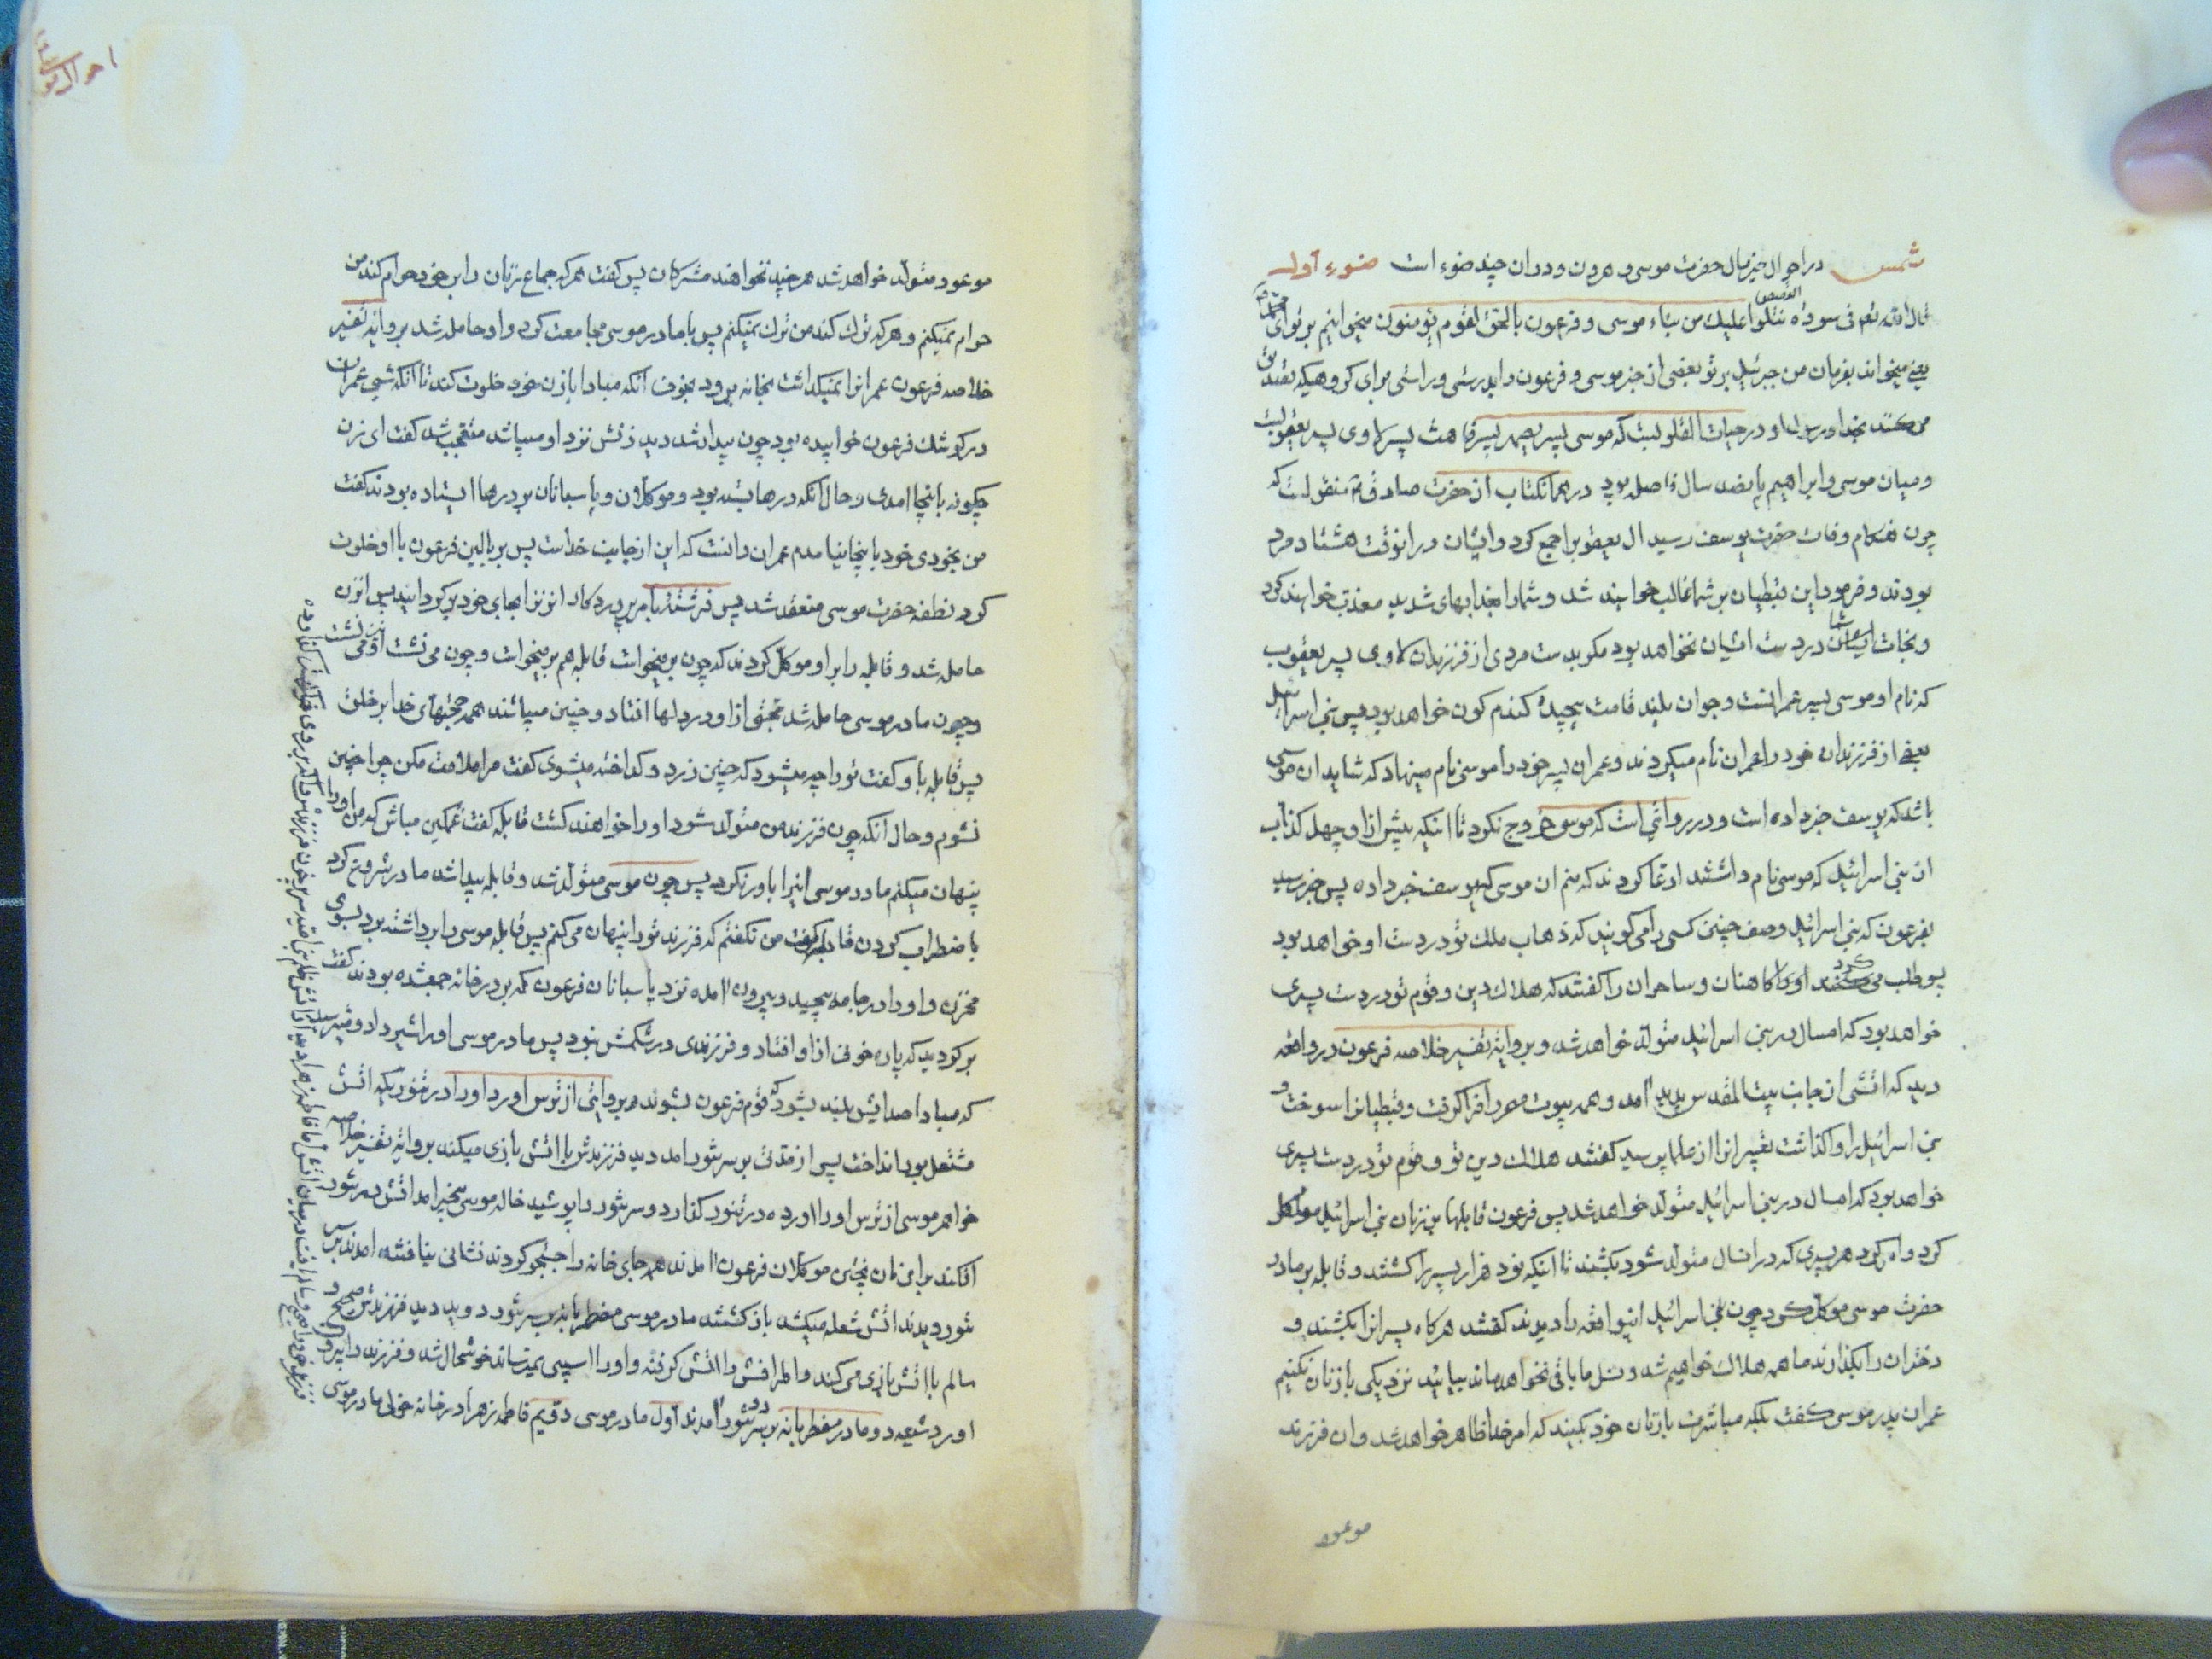 شمس در احوال خیر مال حضرت موسی و هرون و در ان چند ضوء است ضوء اول
قال الله تعم فی سورة القصص نتلوا علیك من نباء موسی و فرعون بالحق لقوم یؤمنون میخوانیم بر تو ای محمد ص
یعنی میخواند بفرمان من جبرئیل بر تو بعضی از خبر موسی و فرعون را بدرستی و راستی برای کروهیکه تصدیق
من کنند بخدا و رسول او در حیات القلوبست که موسی پسر یصهر پسر قاهث پسر لاوی پسر یعقوبست
و میان موسی و ابراهیم پانصد سال فاصله بود در همانکتاب از حضرت صادق ع منقولست که
چون هنکام وفات حضرت یوسف رسید ال یعقوب را جمع کرد و ایشان در انوقت هشتاد مرد
بودند و فرمود این قبطیان بر شما غالب خواهند شد و شما را بعذابهای شدید معذب خواهند کرد
و نجات شما در دست ایشان نخواهد بود مکر بدست مردی از فرزندان لاوی پسر یعقوب
که نام او موسی پسر عمرانست و جوان بلند قامت پیچیده کندم کون خواهد بود پس بنی اسرائیل
بعضی از فرزندان خود را عمران نام میکردند و عمران پسر خود را موسی نام مینهاد که شاید ان موسی
باشد که یوسف خبر داده است و در روایتی است که موسی خروج نکرد تا اینکه پیش از او چهل کذاب
از بنی اسرائیل که موسی نام داشتند ادعا کردند که منم ان موسی که یوسف خبر داده پس خبر رسید
بفرعون که بنی اسرائیل وصف چنین کسی را می کویند که ذهاب ملك تو در دست او خواهد بود
پو طلب می کرد او را کاهنان و ساحران را کفتند که هلاك دین و قوم تو در دست پسری
خواهد بود که امسال در بنی اسرائیل متولد خواهد شد و بروایة تفسیر خلاصه فرعون در واقعه
دید که اتشی از جانب بیت المقدس پدید امد و همه بیوت مصر را فرا کرفت و قبطیانرا سوخت و
بنی اسرائیل را واکذاشت تعبیر انرا از علما پرسید کفتند هلاك دین تو و قوم تو در دست پسری
خواهد بود که امسال در بنی اسرائیل متولد خواهد شد پس فرعون قابلها بر زنان بنی اسرائیل موکل
کرد و امر کرد هر پسری که در انسال متولد شود بکشند تا اینکه نود هزار پسر را کشتند و قابله بر مادر
حضرت موسی موکل کرد چون بنی اسرائیل اینواقعه را دیدند کفتند هرکاه پسرانرا بکشند و
دختران را بکذارند ما همه هلاك خواهیم شد و نسل ما باقی نخواهد ماند بیائید نزدیکی با زنان نکنیم
عمران پدر موسی کفت بلکه مباشرت با زنان خود بکنید که امر خدا ظاهر خواهد شد و ان فرزند
موعود
احوال موسی ع
موعود متولد خواهد شد هر چند نخواهند مشرکان پس کفت هر که جماع زنان را بر خود حرام کند من
حرام نمیکنم و هر که ترك کند من ترك نمیکنم پس با مادر موسی مجامعت کرد و او حامله شد بروایة تفسیر
خلاصه فرعون عمرانرا نمیکذاشت بخانه برود بخوف انکه مبادا با زن خود خلوت کند تا انکه شبی عمران
در کوشك فرعون خوابیده بود چون بیدار شد دید زنش نزد او میباشد متعجب شد کفت ای زن
چکونه باینجا امدی و حال انکه درها بسته بود و موکلان و پاسبانان بر درها ایستاده بودند کفت
من بخودی خود باینجا نیامدم عمران دانست که این از جانب خداست پس بر بالین فرعون با او خلوت
کرد نطفه حضرت موسی منعقد شد پس فرشته بامر پروردکار انزنرا بجای خود برکردانید پس انزن
حامله شد و قابله را بر او موکل کردند که چون بر میخواست قابله هم بر میخواست و چون می نشست او نیز می نشست
و چون مادر موسی حامله شد محبتی از او در دلها افتاد و چنین میباشند همه حجتهای خدا بر خلق
پس قابله باو کفت تو را چه میشود که چنین زرد و کداخته میشوی کفت مرا ملامت مکن چرا چنین
نشوم و حال انکه چون فرزند من متولد شود او را خواهند کشت قابله کفت غمکین مباش که من او را
پنهان میکنم مادر موسی اینرا باور نکرد پس چون موسی متولد شد و قابله پیدا شد مادر شروع کرد
باضطراب کردن قابله کفت من نکفتم که فرزند تو را پنهان می کنم پس قابله موسی را برداشته برد بسوی
مخزن و او را در جامه پیچید و بیرون امده نزد پاسبانان فرعون که بر در خانه جمع شده بودند کفت
برکردید که پاره خونی از او افتاد و فرزندی در شکمش نبود پس مادر موسی او را شیر داد و میترسید
که مبادا صدایش بلند شود که قوم فرعون بشنوند و بروایتی از ترس او را در تنور یکه اتش
مشتعل بود انداخت پس از مدتی بر سر تنور امد دید فرزندش با اتش بازی میکند بروایة تفسیر خلاصه
خواهر موسی از ترس او را اورده در تنور کذارد و سر تنور را پوشید خاله موسی بیخبر امد اتش در تنور
افکند در این زمان موکلان فرعون امدند همه جای خانه را جستجو کردند نشانی نیافتند امدند بر سر
تنور دیدند اتش شعله میکشد باز کشتند مادر موسی مضطربانه بر سر تنور دوید دید فرزندش صحیح و
سالم با اتش بازی می کند و اطرافش را اتش کرفته و او را اسیبی نمیرساند خوشحال شد و فرزند را بیرون
اورد شیعه دو مادر مضطربانه بر سر تنور امدند اول مادر موسی دویم فاطمه زهرا در خانه خولی مادر موسی